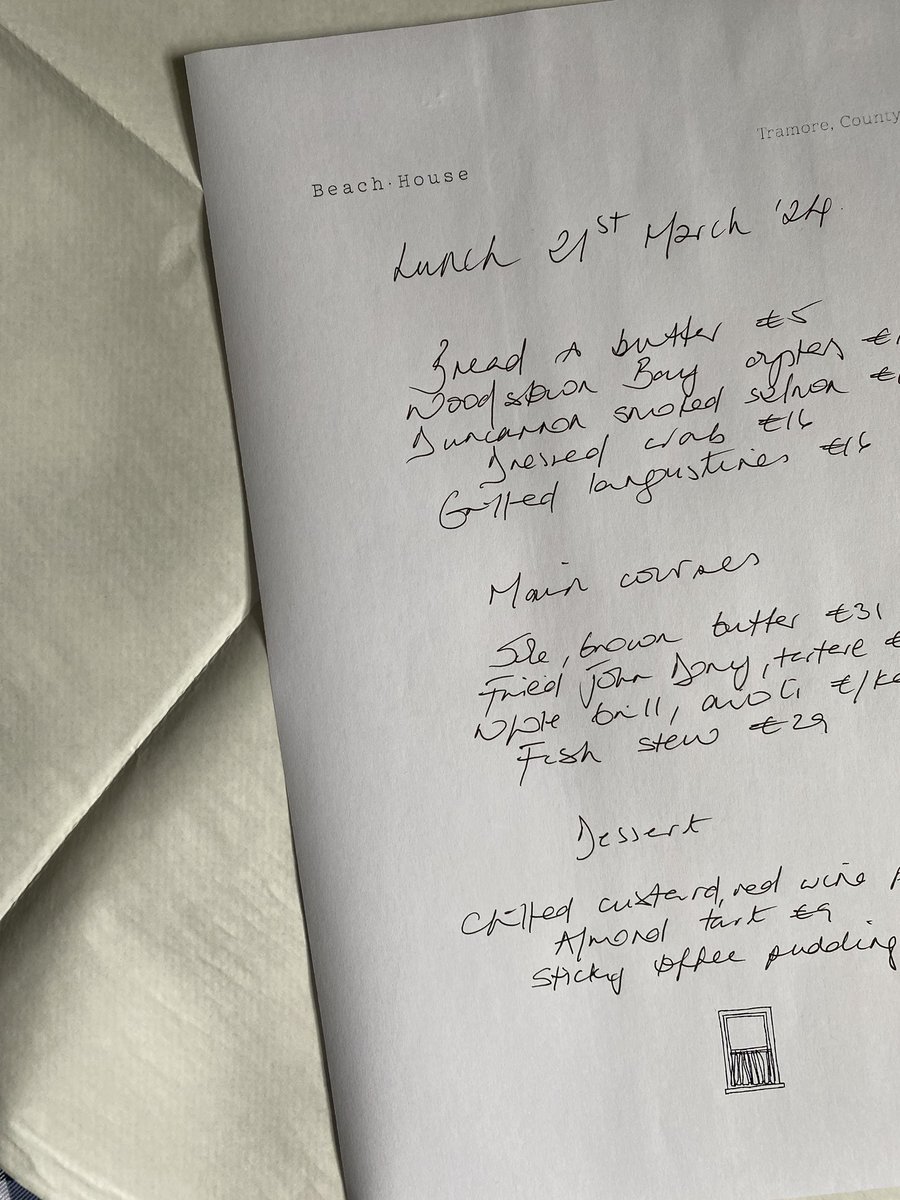 Tramore, County
Beach·House
Lunch 21st March '24
Bread & butter €5
Woodstown Bay oysters €
Duncannon smoked salmon €
Dressed crab €16
Grilled langoustines €16
Main courses
Sole, brown butter €31
Fried John Dory, tartare €
Whole brill, aioli €/KG
Fish stew €29
Dessert
Chilled custard, red wine
Almond tart €9
Sticky toffee pudding